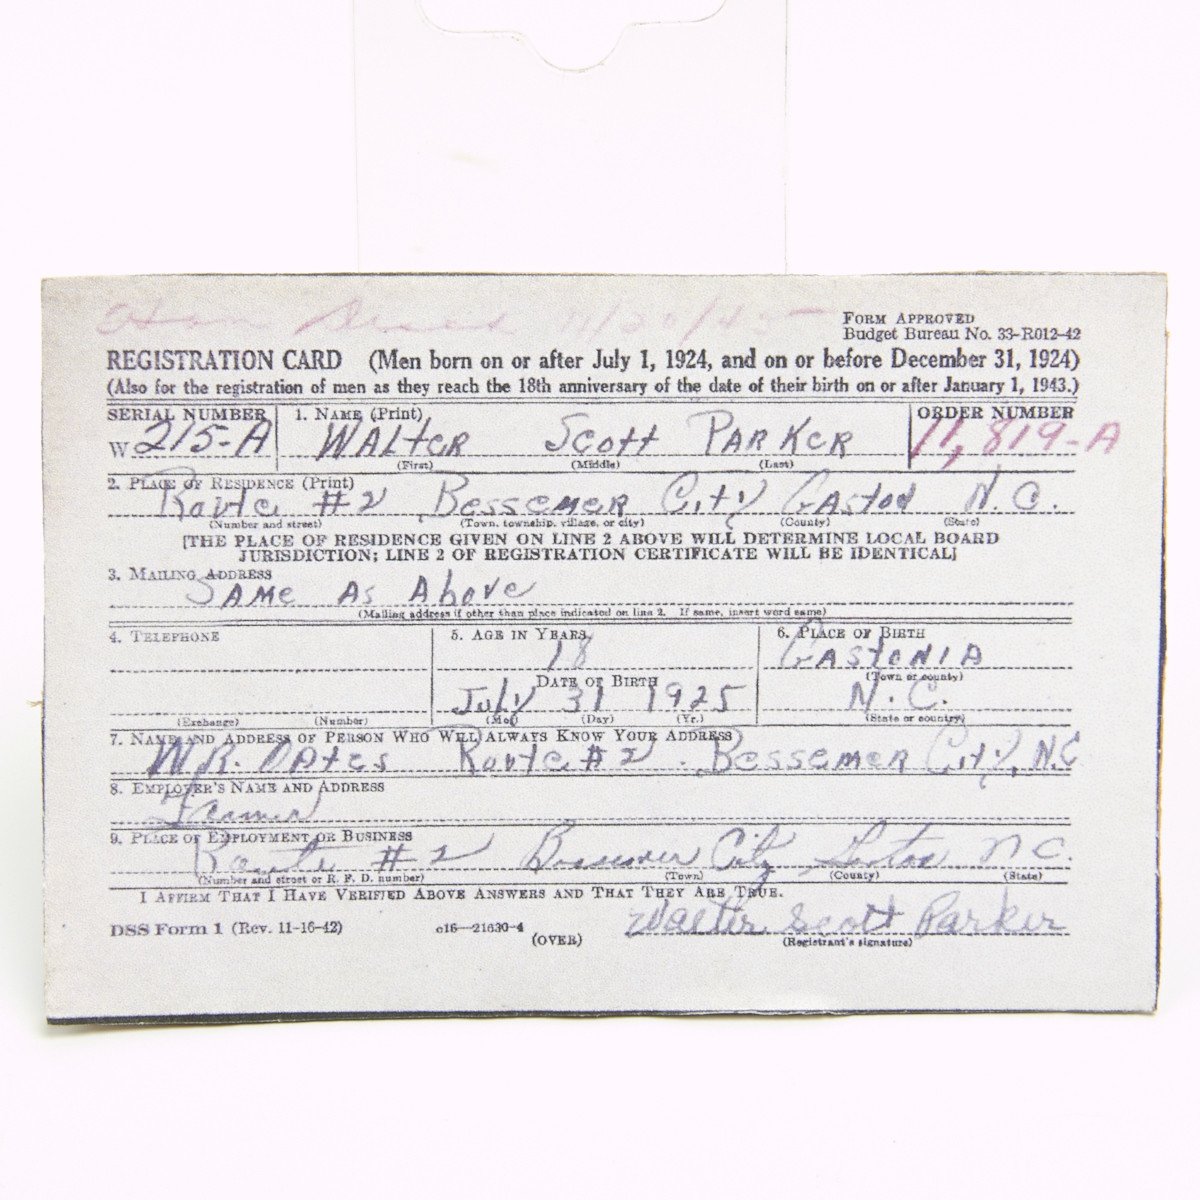 11/30/45
FORM APPROVED
Budget Bureau No. 33-R012-42
REGISTRATION CARD (Men born on or after July 1, 1924, and on or before December 31, 1924)
(Also for the registration of men as they reach the 18th anniversary of the date of their birth on or after January 1, 1943.)
SERIAL NUMBER 1. NAME (Print) ORDER NUMBER
W 215-A WALTER SCOTT PARKER 11,819-A
(First) (Middle) (Last)
2. PLACE OF RESIDENCE (Print)
Route #2 Bessemer City Gaston N.C.
(Number and street) (Town, township, village, or city) (County) (State)
[THE PLACE OF RESIDENCE GIVEN ON LINE 2 ABOVE WILL DETERMINE LOCAL BOARD
JURISDICTION; LINE 2 OF REGISTRATION CERTIFICATE WILL BE IDENTICAL]
3. MAILING ADDRESS
Same As Above
(Mailing address if other than place indicated on line 2. If same, insert word same)
4. TELEPHONE 5. AGE IN YEARS 6. PLACE OF BIRTH
18 Gastonia
DATE OF BIRTH (Town or county)
July 31 1925 N.C.
(Exchange) (Number) (Mo.) (Day) (Yr.) (State or country)
7. NAME AND ADDRESS OF PERSON WHO WILL ALWAYS KNOW YOUR ADDRESS
W.R. Oates Route #2 . Bessemer City, N.C
8. EMPLOYER'S NAME AND ADDRESS
Farmer
9. PLACE OF EMPLOYMENT OR BUSINESS
Route #2 Bessemer City Gaston N C.
(Number and street or R. F. D. number) (Town) (County) (State)
I AFFIRM THAT I HAVE VERIFIED ABOVE ANSWERS AND THAT THEY ARE TRUE.
Walter Scott Parker
DSS Form 1 (Rev. 11-16-42) c16—21630-4 (OVER) (Registrant's signature)